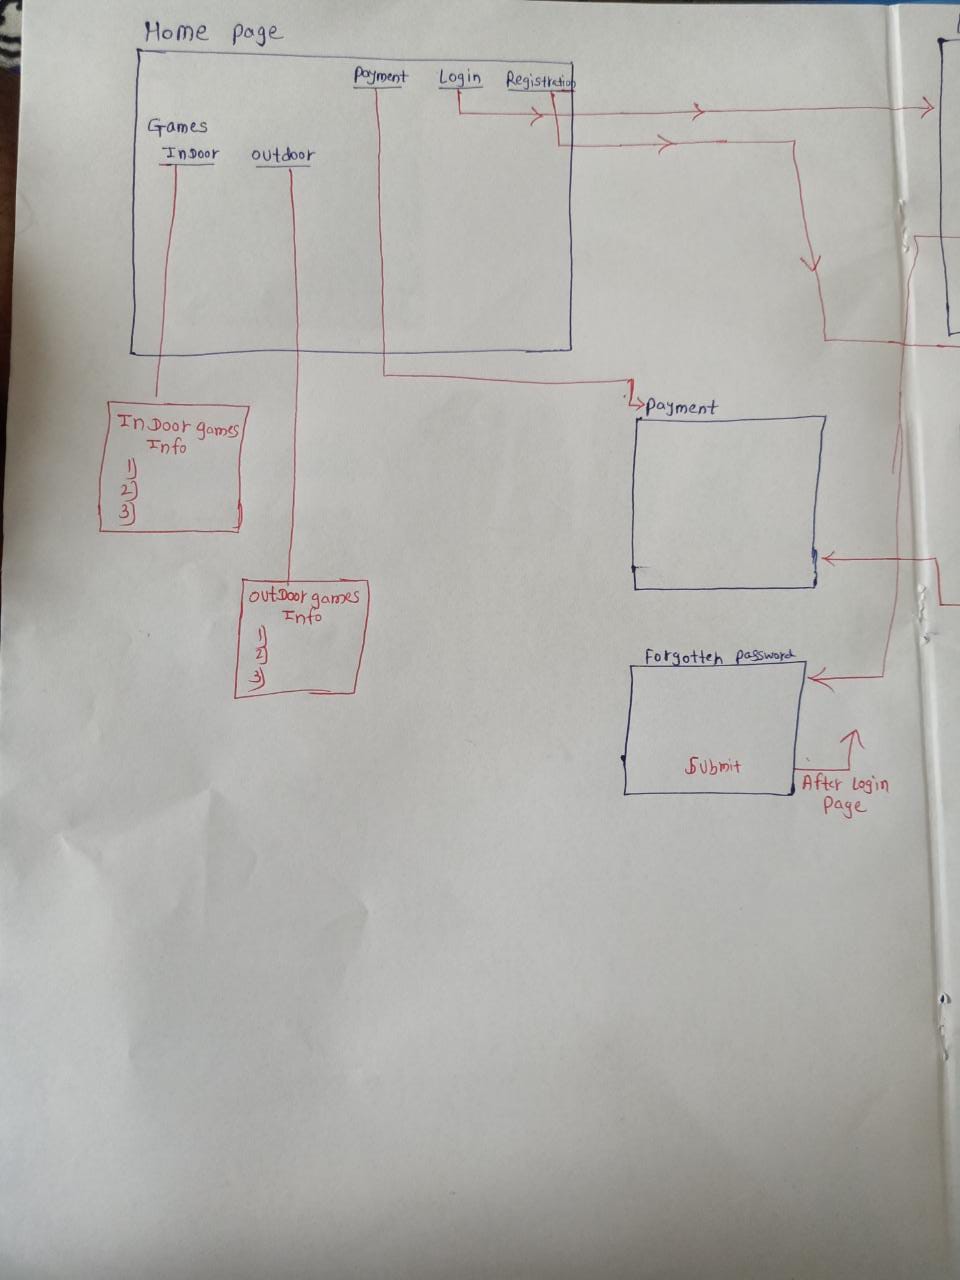 Home page
Payment Login Registration
Games
InDoor outdoor
InDoor games
Info
1)
2)
3)
Payment
OutDoor games
Info
1)
2)
3)
Forgotten password
Submit
After Login
Page